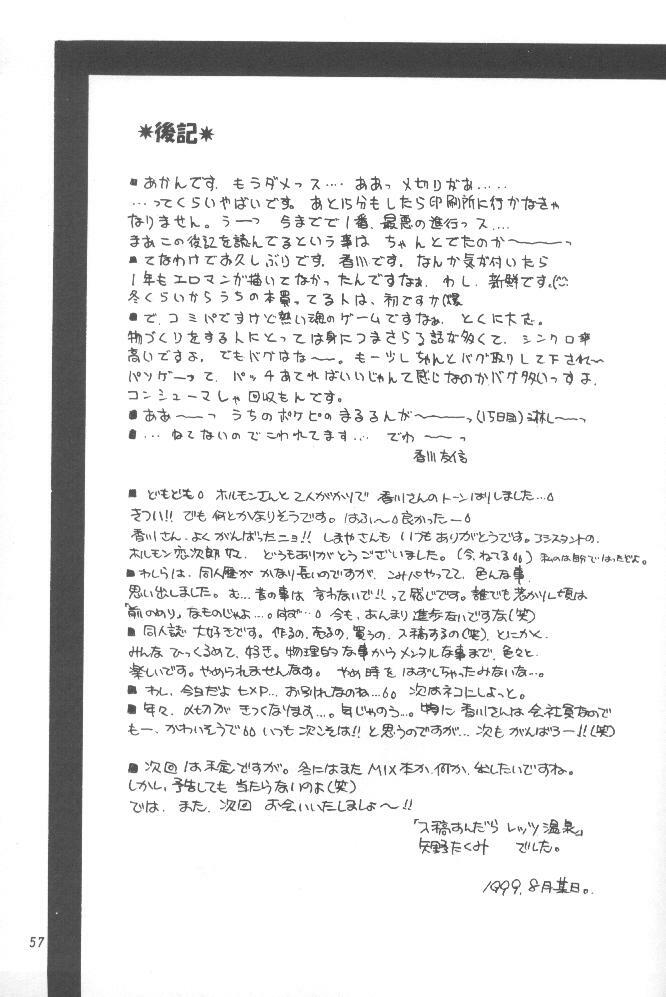 *後記*
■あかんです、もうダメっス‥‥ ああっ〆切りがあ‥‥‥
‥‥ってくらいやばいです。あと15分もしたら印刷所に行かなきゃ
なりません。うーっ 今までで1番、最悪の進行っス‥‥
まあこの後記を読んでるという事は ちゃんとでたのか〜〜っ
■てなわけでお久しぶりです、香川です。なんか気が付いたら
1年もエロマンガ描いてなかったんですなぁ、わし、新鮮です。
冬くらいからうちの本買ってる人は、初ですか(爆
■で、コミパですけど熱い魂のゲームですなぁ、とくに大志。
物づくりをする人にとっては身につまさらる話が多くて、シンクロ率
高いですよ、でもバグはな〜〜。もーツしちゃんとバグ取りして下され〜
パソゲーって、パッチあてればいいじゃんて感じなのかバグ多いっすよ、
コンシューマじゃ回収もんです。
■ああ〜〜っ うちのポケピのまるるんが〜〜〜っ(15日目)淋し〜〜っ
■‥‥ねてないのでこわれてます‥‥ でわ〜〜っ
香川友信
■どもども。ホルモンさんと2人がかりで香川さんのトーンはりしました‥‥。
きつい!! でも何とかなりそうです。はふぅ〜。良かったー。
香川さん、よくがんばったニョ!! しまやさんもいつもありがとうです。アシスタントの、
ホルモン恋次郎 どうもありがとうございました。(今、ねてる。。) 私のは自分ではったどよ。
■わしらは、同人歴がかなり長いのですが、こみパやってて、色んな事、
思い出しました。む‥‥昔の事は言わないで!!って感じです。誰でも若かりし頃は
「前のめり」なものじゃよ‥‥。はず‥‥。今も、あんまり進歩ないですな(笑)
■同人誌大好きです。作るの、売るの、買うの、入稿するの(笑)、とにかく、
みんなひっくるめて、好き。物理的な事からメンタルな事まで、色々と、
楽しいです。やめられませんなあ。やめ時をはずしちゃったみたいな‥‥。
■わし、今日だよ七XP‥‥お別れなのね‥‥。。 次はネコにしよっと。
■年々、〆切がきつくなります‥‥。年じゃのう‥‥。特に香川さんは会社員なので
もー、かわいそうで。。いつも次こそは!!と思うのですが‥‥次もがんばろー!!(笑)
■次回は未定ですが。冬にはまたMIX本か何か、出したいですね。
しかし、予告しても当たらないのよ(笑)
では、また、次回お会いいたしましょ〜!!
「入稿すんだら レッツ温泉」
矢野たくみ でした。
1999.8月某日。
57